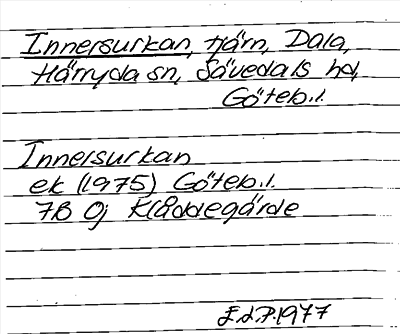 Innersurkan, tjärn, Dala,
Härryda sn, Sävedals hd,
Göteb.l.
Innersurkan
ek (1975) Göteb.l.
7B 0j Klåddegärde
E.d.P. 1977